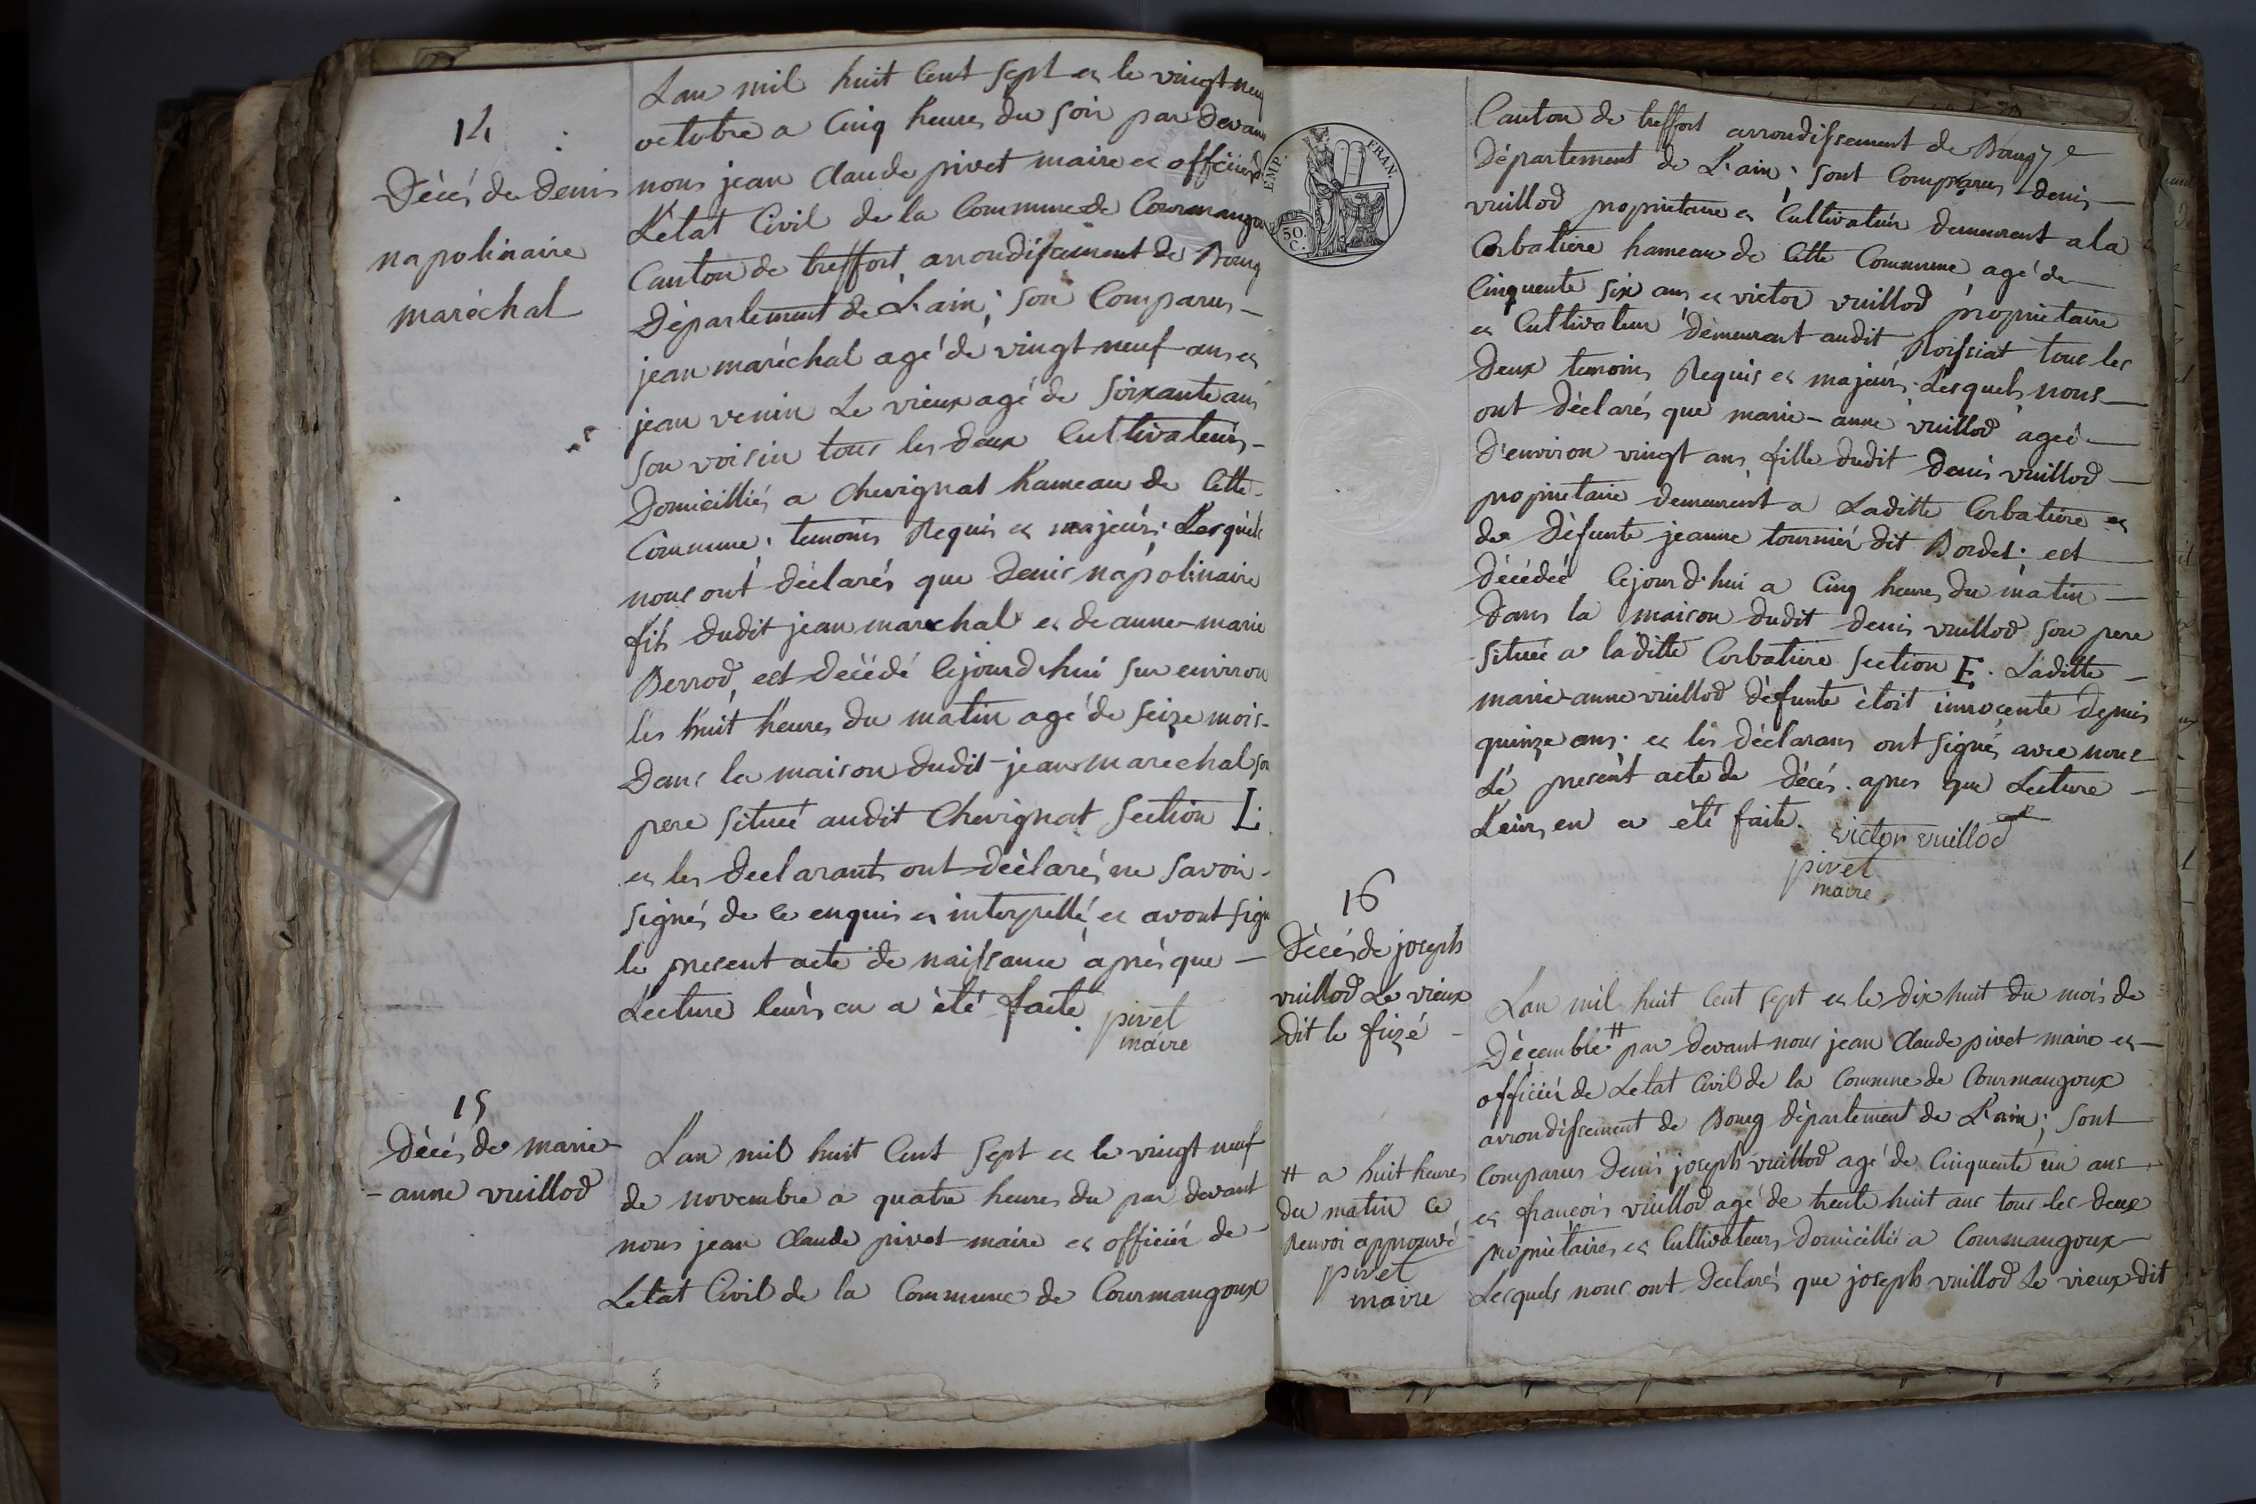 14
Décés de denis
napolinaire
maréchal
Lan mil huit Cent sept et le vingt neuf
octobre a Cinq heures du soir par devant
nous jean Claude pivet maire et officier d
L'état Civil de la Commune de Courmangou
Canton de treffort, arrondissement de Bourg
Département de L'ain ; son Comparus
jean maréchal agé de vingt neuf ans et
jean venin Le vieux agé de soixante ans
son voisin tous les deux Cultivateurs
Domicilliés a Chevignat hameau de Cette
Commune ; temoins Requis et majeurs ; Lesquels
nous ont déclarés que Denis napolinaire
fils dudit jean marechal et de anne-marie
Berrod, est décédé Cejourd'hui sur environ
les huit heures du matin agé de seize mois
Dans la maison dudit jean marechal son
pere située audit Chevignat Section L.
et les declarants ont déclarés ne savoir
signés de ce enquis et interpellé et avont sign
le present acte de naissance après que
Lecture leurs en a été faite.
pivet
maire
15
Décés de marie
- anne vuillod
L'an mil huit Cent sept et le vingt neuf
de novembre a quatre heures du par devant
nous jean Claude pivet maire et officiér de
Letat Civil de la Commune de Courmangoux
EMP. FRAN.
50.
C.
Canton de treffort arrondissement de Bourg
Département de L'ain ; sont Comparus denis
vuillod proprietaire et Cultivateur demeurent a la
Corbatiere hameau de Cette Commune agé de
Cinquente six ans et victor vuillod proprietaire
et Cultivateur demeurant audit Roissiat tous les
deux temoins Requis et majeurs ; Lesquels nous
ont déclarés que marie-anne vuillod ageé
D'environ vingt ans, fille dudit Denis vuillod
proprietaire demeurent a Laditte Corbatiere et
de Défunte jeanne tournier dit Bordet ; est
Décédeé Cejourd'hui a Cinq heures du matin
Dans la maison dudit denis vuillod son pere
située a laditte Corbatiere Section E. Laditte
marie anne vuillod défunte étoit innocente depuis
quinze ans ; et les déclarans ont signés avec nous
Le present acte de décés apres que Lecture
Leurs en a été faite.
victor vuillod
pivet
maire
16
Décés de joseph
vuillod Le vieux
dit le frizé
Lan mil huit Cent sept et le dix huit du mois de
Décembre # par devant nous jean Claude pivet maire et
officiér de Letat Civil de la Commune de Courmangoux
arrondissement de Bourg département de L'ain ; sont
Comparus Denis joseph vuillod agé de Cinquente un ans
et françois vuillod agé de trente huit ans tous les deux
proprietaires et Cultivateurs domicilliés a Courmangoux
Lesquels nous ont declarés que joseph vuillod Le vieux dit
# a huit heures
du matin Ce
Renvoi approuvé
pivet
maire